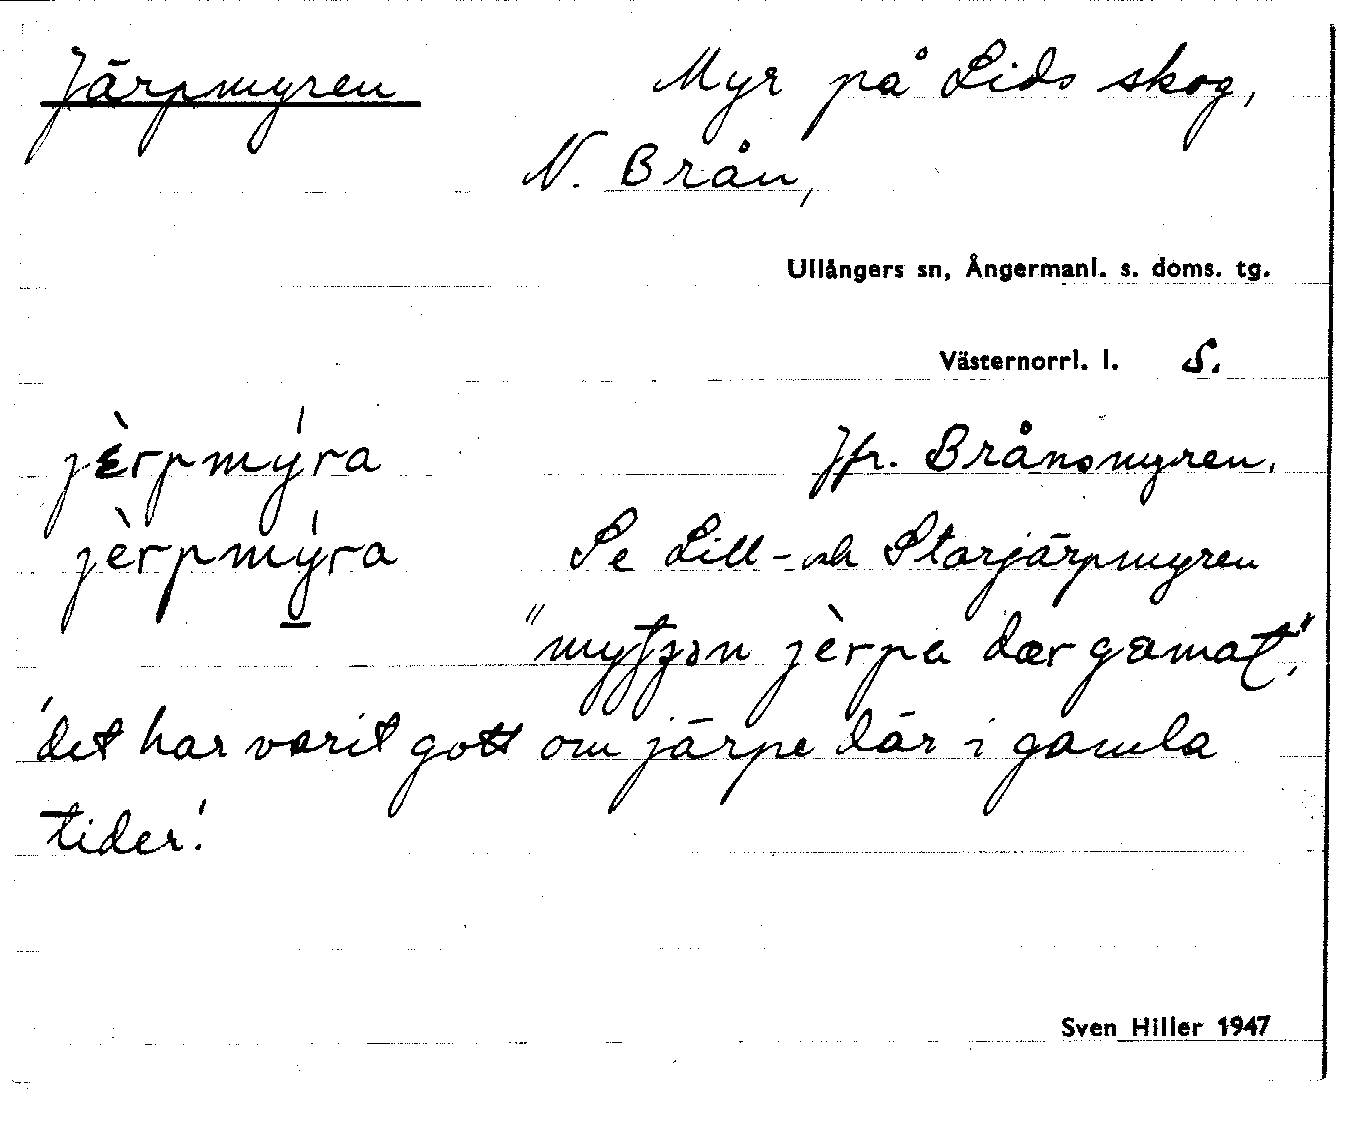 Järpmyren Myr på Lids skog,
N. Brån,
Ullångers sn, Ångermanl. s. doms. tg.
Västernorrl. l. S.
jɛ̀rpmýra Jfr. Brånsmyren.
jèrpmýra Se Lill- och Storjärpmyren
jèrpa dær gamaƚ."
'det har varit gott om järpe där i gamla
tider.'
Sven Hiller 1947